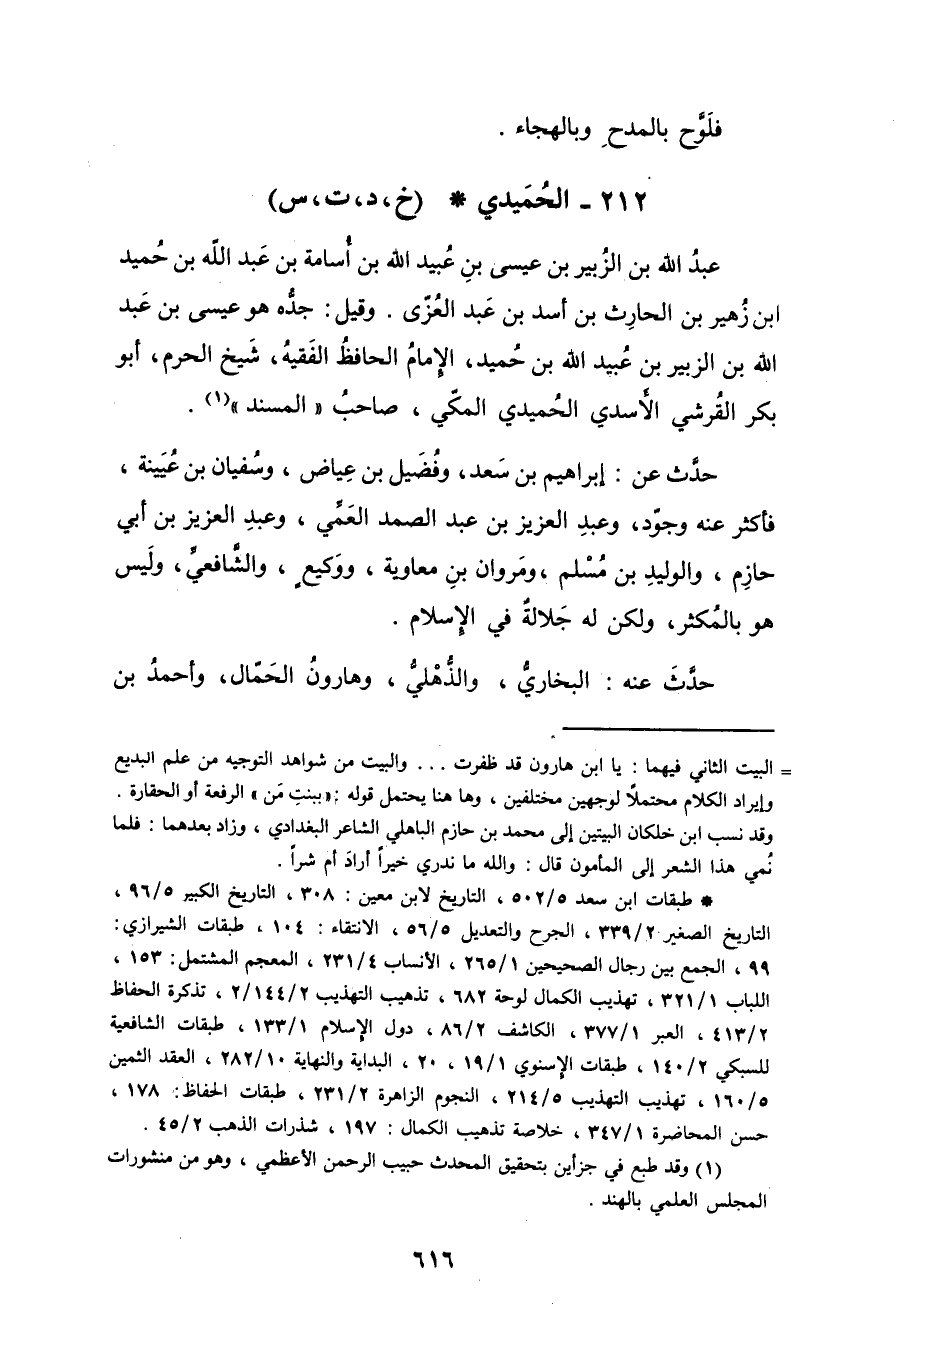 فلَوَّح بالمدحِ وبالهجاء .
٢١٢ ـ الحُمَيدي * (خ، د، ت، س)
عبدُ الله بن الزُبير بن عيسى بنِ عُبيد الله بن أُسامة بن عَبد اللّه بن حُميد
ابن زُهير بن الحارِث بن أسد بن عَبد العُزّى . وقيل: جدُّه هو عيسى بن عَبد
الله بن الزبير بن عُبيد الله بن حُميد، الإِمامُ الحافظُ الفَقيهُ، شَيخ الحرم، أبو
بكر القُرشي الأَسدي الحُميدي المكّي ، صاحبُ « المسند »(١) .
حدَّث عن : إبراهيم بن سَعد، وفُضَيل بن عِياض ، وسُفيان بن عُيَينة ،
فأكثر عنه وجوّد، وعبدِ العزيز بن عبد الصمد العَمِّي ، وعبدِ العزيز بن أبي
حازِم ، والوليدِ بن مُسْلم ،ومَروان بنِ معاوية ، ووَكيعٍ ، والشَّافعيِّ، ولَيس
هو بالمُكثر، ولكن له جَلالةٌ في الإِسلام .
حدَّثَ عنه : البخاريُّ ، والذُّهْليُّ ، وهارونُ الحَمّال، وأحمدُ بن
= البيت الثاني فيهما : يا ابن هارون قد ظفرت ... والبيت من شواهد التوجيه من علم البديع
وإيراد الكلام محتملاً لوجهين مختلفين ، وها هنا يحتمل قوله :«ببنتِ مَن » الرفعة أو الحقارة .
وقد نسب ابن خلكان البيتين إلى محمد بن حازم الباهلي الشاعر البغدادي ، وزاد بعدهما : فلما
نُمي هذا الشعر إلى المأمون قال : والله ما ندري خيراً أرادَ أم شراً .
* طبقات ابن سعد ٥٠٢/٥ ، التاريخ لابن معين : ٣٠٨ ، التاريخ الكبير ٩٦/٥ ،
التاريخ الصغير ٣٣٩/٢ ، الجرح والتعديل ٥٦/٥ ، الانتقاء : ١٠٤ ، طبقات الشيرازي:
٩٩ ، الجمع بين رجال الصحيحين ٢٦٥/١ ، الأنساب ٢٣١/٤ ، المعجم المشتمل: ١٥٣ ،
اللباب ٣٢١/١ ، تهذيب الكمال لوحة ٦٨٢ ، تذهيب التهذيب ٢/١٤٤/٢ ، تذكرة الحفاظ
٤١٣/٢ ، العبر ٣٧٧/١ ، الكاشف ٨٦/٢ ، دول الإسلام ١٣٣/١ ، طبقات الشافعية
للسبكي ١٤٠/٢ ، طبقات الإسنوي ١٩/١ ، ٢٠ ، البداية والنهاية ٢٨٢/١٠ ، العقد الثمين
١٦٠/٥ ، تهذيب التهذيب ٢١٤/٥ ، النجوم الزاهرة ٢٣١/٢ ، طبقات الحفاظ: ١٧٨ ،
حسن المحاضرة ٣٤٧/١ ، خلاصة تذهيب الكمال : ١٩٧ ، شذرات الذهب ٤٥/٢ .
(١) وقد طبع في جزأين بتحقيق المحدث حبيب الرحمن الأعظمي ، وهو من منشورات
المجلس العلمي بالهند .
٦١٦